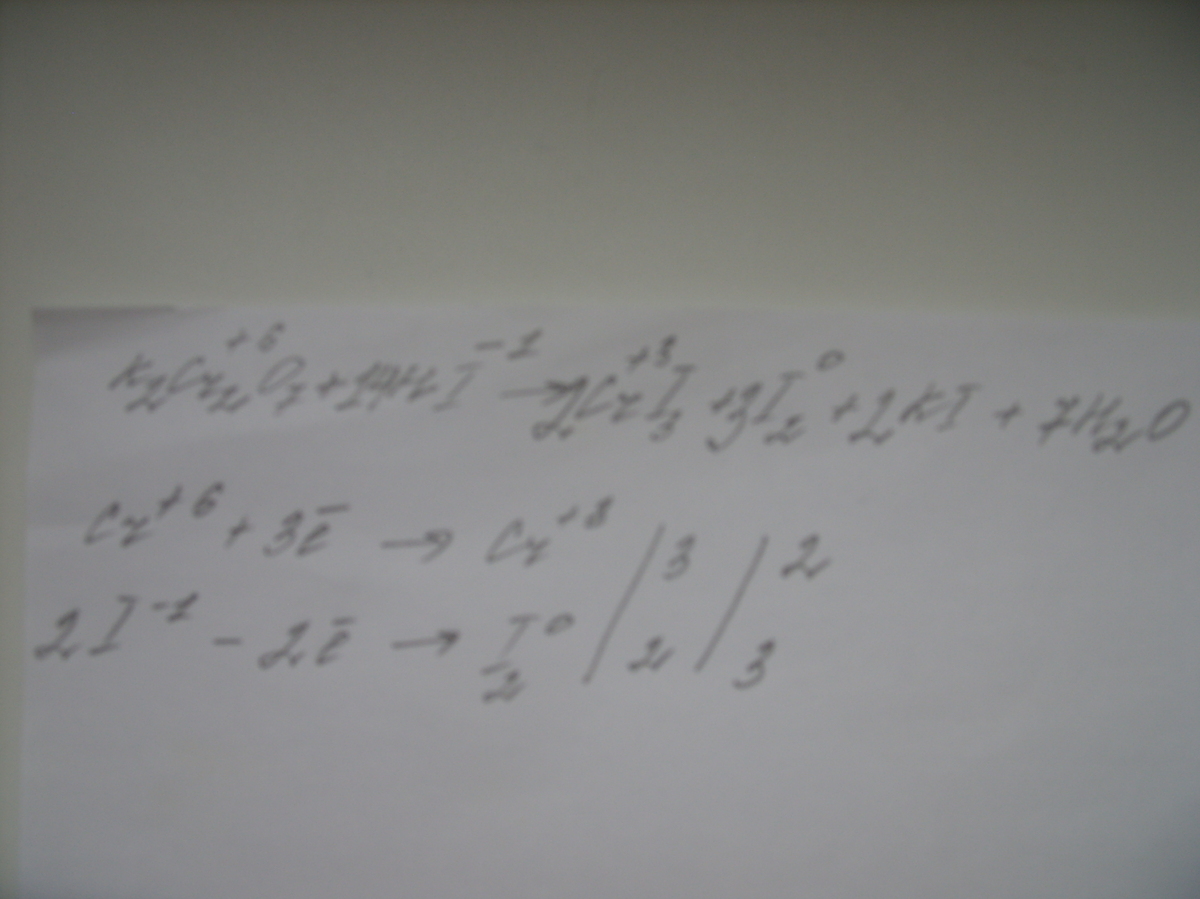 K₂Cr₂⁺⁶O₇ + 14HI⁻¹ → 2Cr⁺³I₃ + 3I₂⁰ + 2KI + 7H₂O
Cr⁺⁶ + 3ē → Cr⁺³ / 3 / 2
2I⁻¹ - 2ē → I₂⁰ / 2 / 3